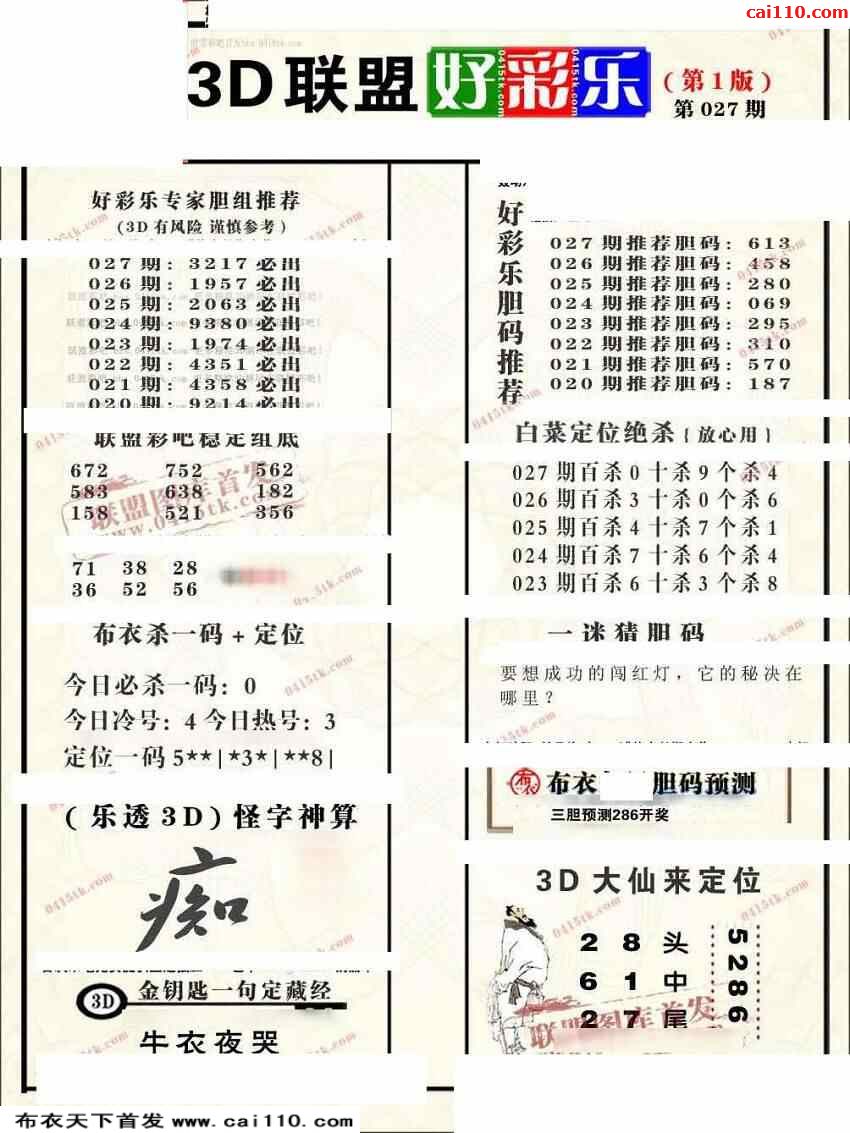 cai110.com
3D联盟好彩乐
0415tk.com 0415tk.com 0415tk.com
(第1版)
第027期
好彩乐专家胆组推荐
(3D有风险 谨慎参考)
027期: 3217必出
026期: 1957必出
025期: 2063必出
024期: 9380必出
023期: 1974必出
022期: 4351必出
021期: 4358必出
020期: 9214必出
联盟彩吧稳定组底
672 752 562
583 638 182
158 521 356
联盟图库首发
www.0415tk.com
71 38 28
36 52 56
布衣杀一码+定位
今日必杀一码: 0
今日冷号: 4 今日热号: 3
定位一码 5**|*3*|**8|
(乐透3D)怪字神算
痴
3D 金钥匙一句定藏经
牛衣夜哭
好彩乐胆码推荐
027期推荐胆码: 613
026期推荐胆码: 458
025期推荐胆码: 280
024期推荐胆码: 069
023期推荐胆码: 295
022期推荐胆码: 310
021期推荐胆码: 570
020期推荐胆码: 187
白菜定位绝杀{放心用}
027期百杀0十杀9个杀4
026期百杀3十杀0个杀6
025期百杀4十杀7个杀1
024期百杀7十杀6个杀4
023期百杀6十杀3个杀8
一迷猜胆码
要想成功的闯红灯，它的秘决在
哪里？
布衣 布衣 胆码预测
三胆预测286开奖
3D大仙来定位
2 8 头
6 1 中
2 7 尾
5286
联盟图库首发
布衣天下首发 www.cai110.com